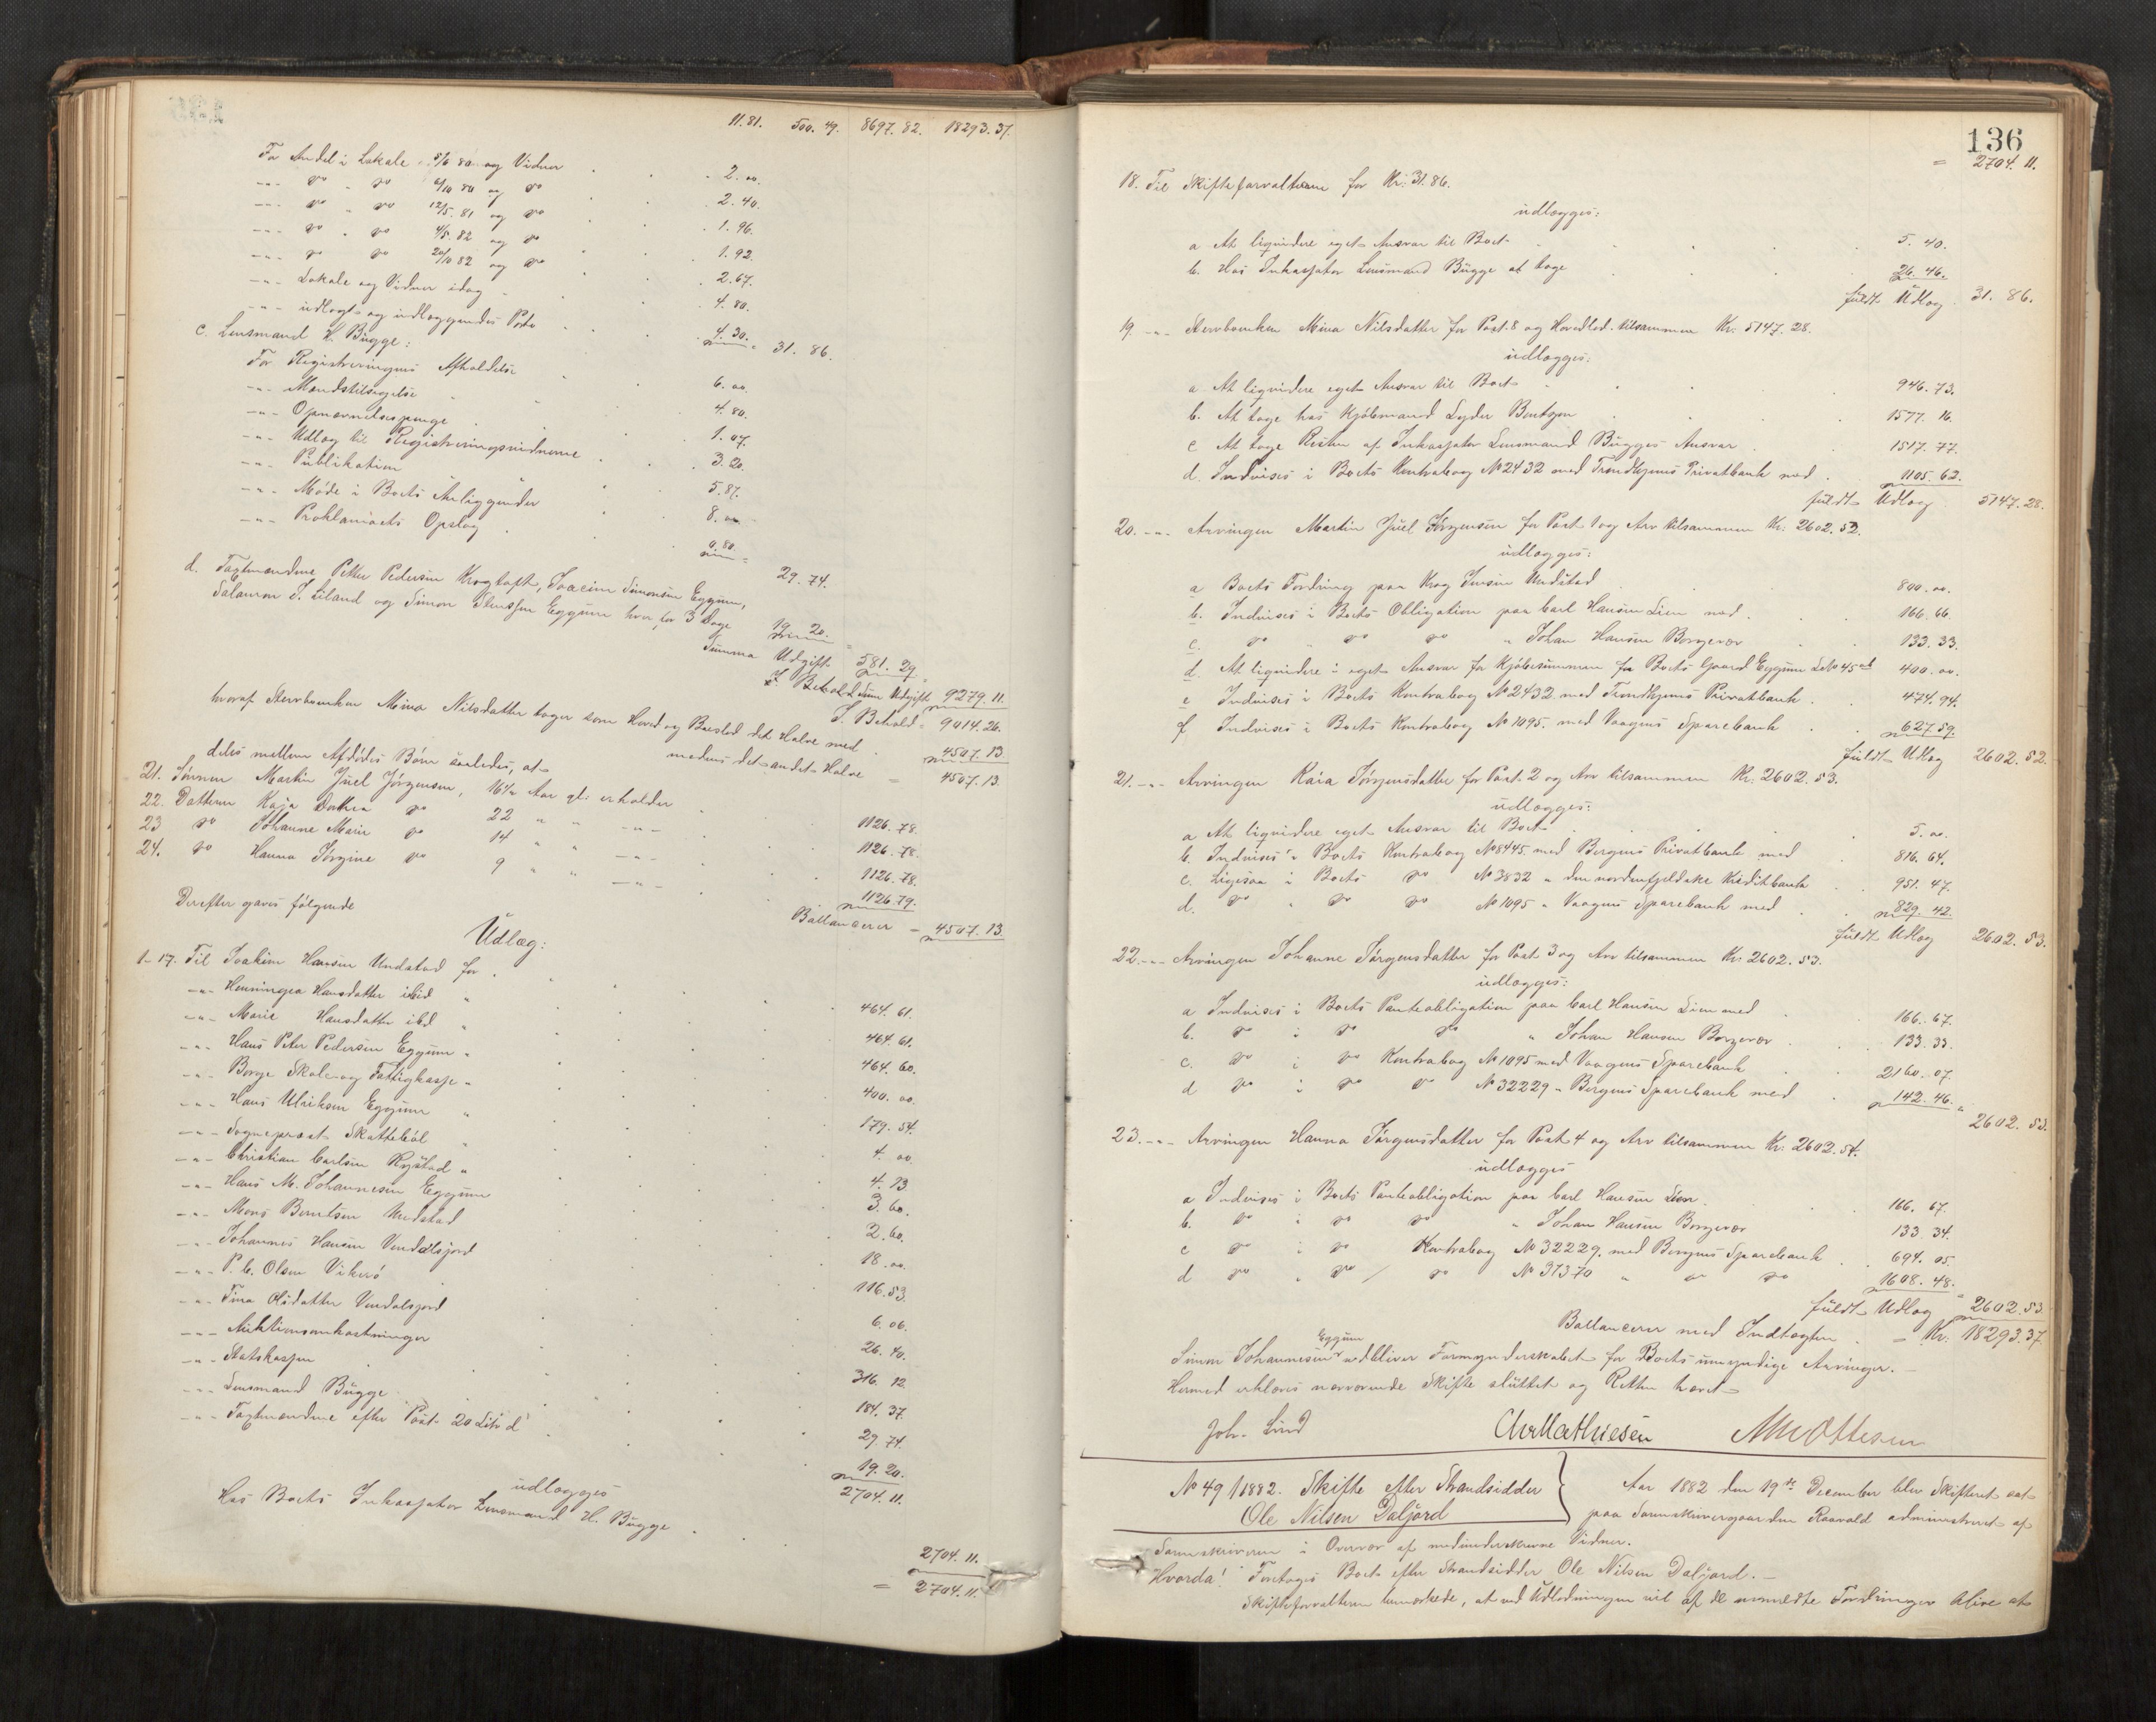 11.81. 500.49. 8697.82. 18293.37.
For Andel i Lokale 5/6 80 og Vidner 2.00.
-"- do " do 6/10 80 og do 2.40.
-"- do " do 12/5.81 og do 1.96.
-"- do " do 4/5.82 og do 1.92.
-"- do do 20/10 82 og do 2.67.
-"- Lokale og Vidner idag 4.80.
-"- udlagt og udlæggendes Porto 4.30. = 31.86.
c. Lensmand H. Bügge:
For Registreringens Afholdelse 6.00
-"- Mandstilsigelse 4.80.
-"- Opnævnelsespenge 1.07.
-"- Udlæg til Registreringsvidnerne 3.20.
-"- Püblikation 5.87.
-"- Møde i Boets Anliggender 8.00
-"- Proklamaets Opslag 0.80. = 29.74.
d. Taxtmændene Petter Pedersen Krogtoft, Joacim Simonsen Eggum,
Salamon J. Liland og Simon Jenssen Eggum hver for 3 Dage 19.20.
Summa Udgift 581.29
Sum Udgift 9279.11.
I Behold = 9014.26.
hvoraf Stervboenken Mina Nilsdatter tager som Hoved og Boeslod det Halve med 4507.13
medens det andet Halve = 4507.13.
deles mellem Afdødes Børn saaledes, at
21. Sønnen Martin Jüel Jörgensen, 16½ Aar gl: erholder 1126.78.
22. Datteren Kaja Dorthea do 22 " " -"- 1126.78.
23 do Johanne Marie do 14 " " -"- 1126.78.
24. do Hanna Jörgine do 9 " " -"- 1126.79.
Ballancerer = 4507.13.
Derefter gjøres følgende
Udlæg:
1-17. Til Joakim Hansen Undstad for 464.61.
-"- Henningea Hansdatter ibid " 464.61.
-"- Marie Hansdatter ibd " 464.60.
-"- Hans Peter Pedersen Eggum " 400.00.
-"- Borge Skole og Fattigkasse " 179.54.
-"- Hans Ulriksen Eggum " 4.00
-"- Sogneprest Skattebøl " 4.13
-"- Christian Carlsen Rystad " 3.60.
-"- Hans M. Johannesen Eggum 2.60.
-"- Mons Berntsen Undstad 18.00.
-"- Johannes Hansen Vendalsjord 116.53.
-"- P. C. Olsen Vikerö 6.06.
-"- Tina Olsdatter Vendalsjord 26.40.
-"- Auktionsomkostninger 316.12.
-"- Statskassen 184.37.
-"- Lensmand Bügge 29.74.
-"- Taxtmændene efter Post 20 Litr d 19.20.
2704.11.
udlægges
Hos Boets Inkassator Lensmand H. Bügge 2704.11.
= 2704.11.
136
= 2704.11.
18. Til Skifteforvalteren for Kr: 31.86.
udlægges:
a At liqvidere eget Ansvar til Boet 5.40.
b. Hos Inkassator Lensmand Bügge at tage 26.46.
füldt Udlæg 31.86.
19. -"- Stervboenken Mina Nilsdatter for Post 8 og Hovedlod tilsammen Kr. 5147.28.
udlægges:
a At liqvidere eget Ansvar til Boet 946.73.
b. At tage hos Kjøbmand Lyder Berntzen 1577.16.
c At tage Resten af Inkassator Lensmand Bügges Ansvar 1517.77.
d. Indvises i Boets Kontrabog No 2432 med Trondhjems Privatbank med 1105.62.
füldt Udlæg 5147.28.
20. -"- Arvingen Martin Jüel Jörgensen for Post 1 og Arv tilsammen Kr: 2602.52.
udlægges:
a Boets Fordring paa Krog Jensen Undstad 800.00.
b. Indvises i Boets Obligation paa Carl Hansen Lien med 166.66.
c. do do do " Johan Hansen Borgevær 133.33.
d. At liqvidere i eget Ansvar for Kjøbesummen for Boets Gaard Eggum LNo 45 ab 400.00.
e Indvises i Boets Kontrabog No 2432 med Trondhjems Privatbank 474.94.
f Indvises i Boets Kontrabog No 1095. med Vaagens Sparebank 627.59.
füldt Udlæg 2602.52.
21. -"- Arvingen Kaia Jörgensdatter for Post 2 og Arv tilsammen Kr. 2602.53.
udlægges:
a At liqvidere eget Ansvar til Boet 5.00.
b. Indvises i Boets Kontrabog No 8445 med Bergens Privatbank med 816.64.
c. Ligesaa i Boets do No 3832 " den nordenfjeldske Kreditbank 951.47.
d. do " do do No 1095 " Vaagens Sparebank med 829.42.
füldt Udlæg 2602.53.
22. -"- Arvingen Johanne Jörgensdatter for Post 3 og Arv tilsammen Kr: 2602.53.
udlægges:
a Indvises i Boets Panteobligation paa Carl Hansen Lien med 166.67.
b. do i do do " Johan Hansen Borgevær 133.33.
c. do i do Kontrabog No 1095 med Vaagens Sparebank 2160.07.
d do i do do No 32229 " Bergens Sparebank med 142.46. " 2602.53.
23. -"- Arvingen Hanna Jörgensdatter for Post 4 og Arv tilsammen Kr. 2602.54.
udlægges
a Indvises i Boets Panteobligation paa Carl Hansen Lien 166.67.
b. do i do do " Johan Hansen Borgevær 133.34.
c do i do Kontrabog No 32229. med Bergens Sparebank 694.05.
d do " do do No 31370 " do do 1608.48.
füldt Udlæg = 2602.53
Ballancerer med Indtægten = Kr: 18293.37.
Simon Johannesen Eggum vedbliver Formynderskabet for Boets umyndige Arvinger.
Hermed erklæres nærværende Skifte slüttet og Retten hævet
Joh. Lind Chr Mathiesen M Ottesen
No 49/1882. Skifte efter Strandsidder
Ole Nilsen Daljord
Aar 1882 den 19de December blev Skifteret sat
paa Sorenskrivergaarden Raavold administreret af
Sorenskriveren i Overvær af medunderskrevne Vidner.
Hvorda! Foretoges Boet efter Strandsidder Ole Nilsen Daljord.
Skifteforvalteren bemærkede, at ved Udlodningen vil af de anmeldte Fordringer blive at